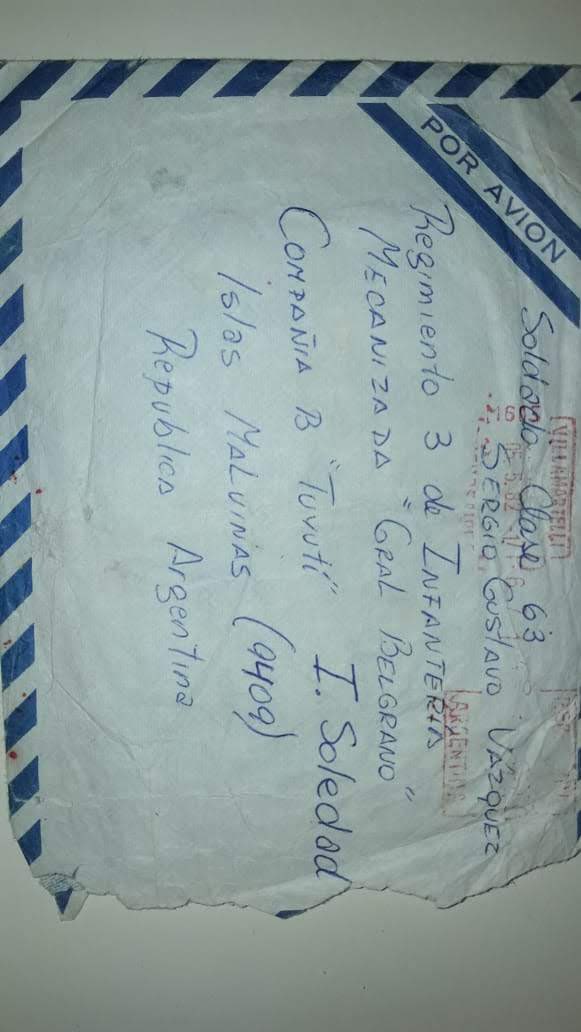 POR AVION
VILLA MARTELLI
ARGENTINA
Soldado Clase 63
SERGIO GUSTAVO VÁZQUEZ
Regimiento 3 de INFANTERIA
MECANIZADA "GRAL BELGRANO"
COMPAÑIA B "TUYUTÍ" I. Soledad
Islas MALVINAS (9409)
Republica Argentina